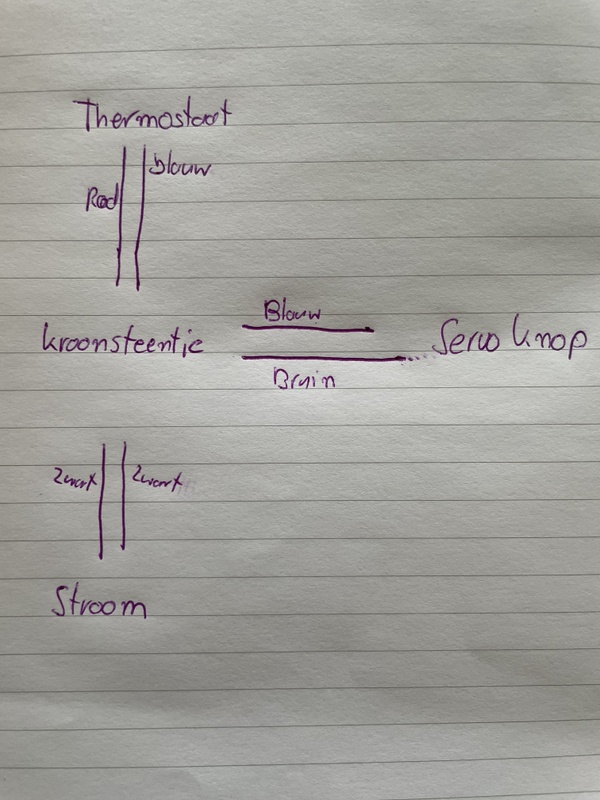 Thermostaat
blouw
Rood
Blouw
kroonsteentje
Servo knop
Bruin
Zwart
Zwart
Stroom